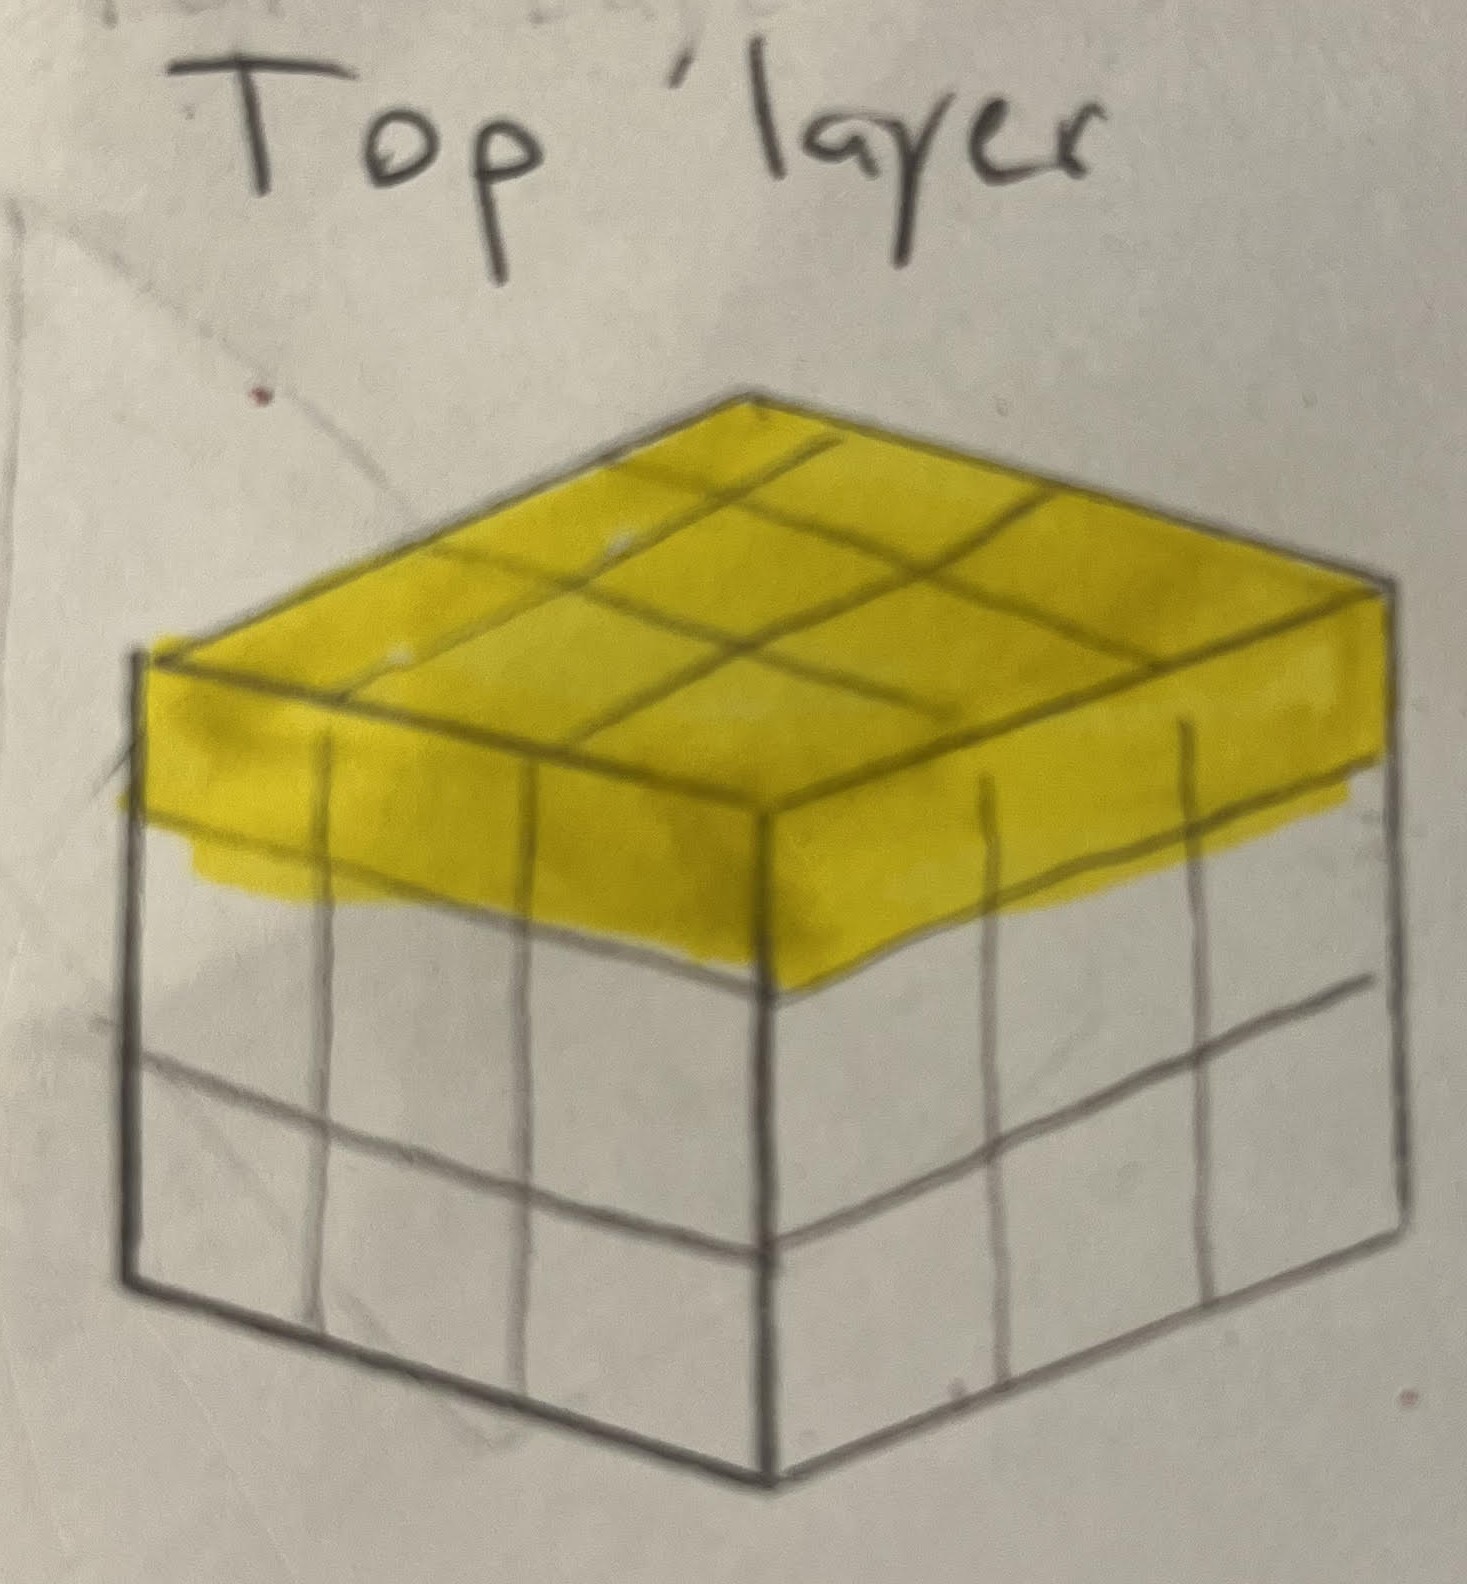 Top layer